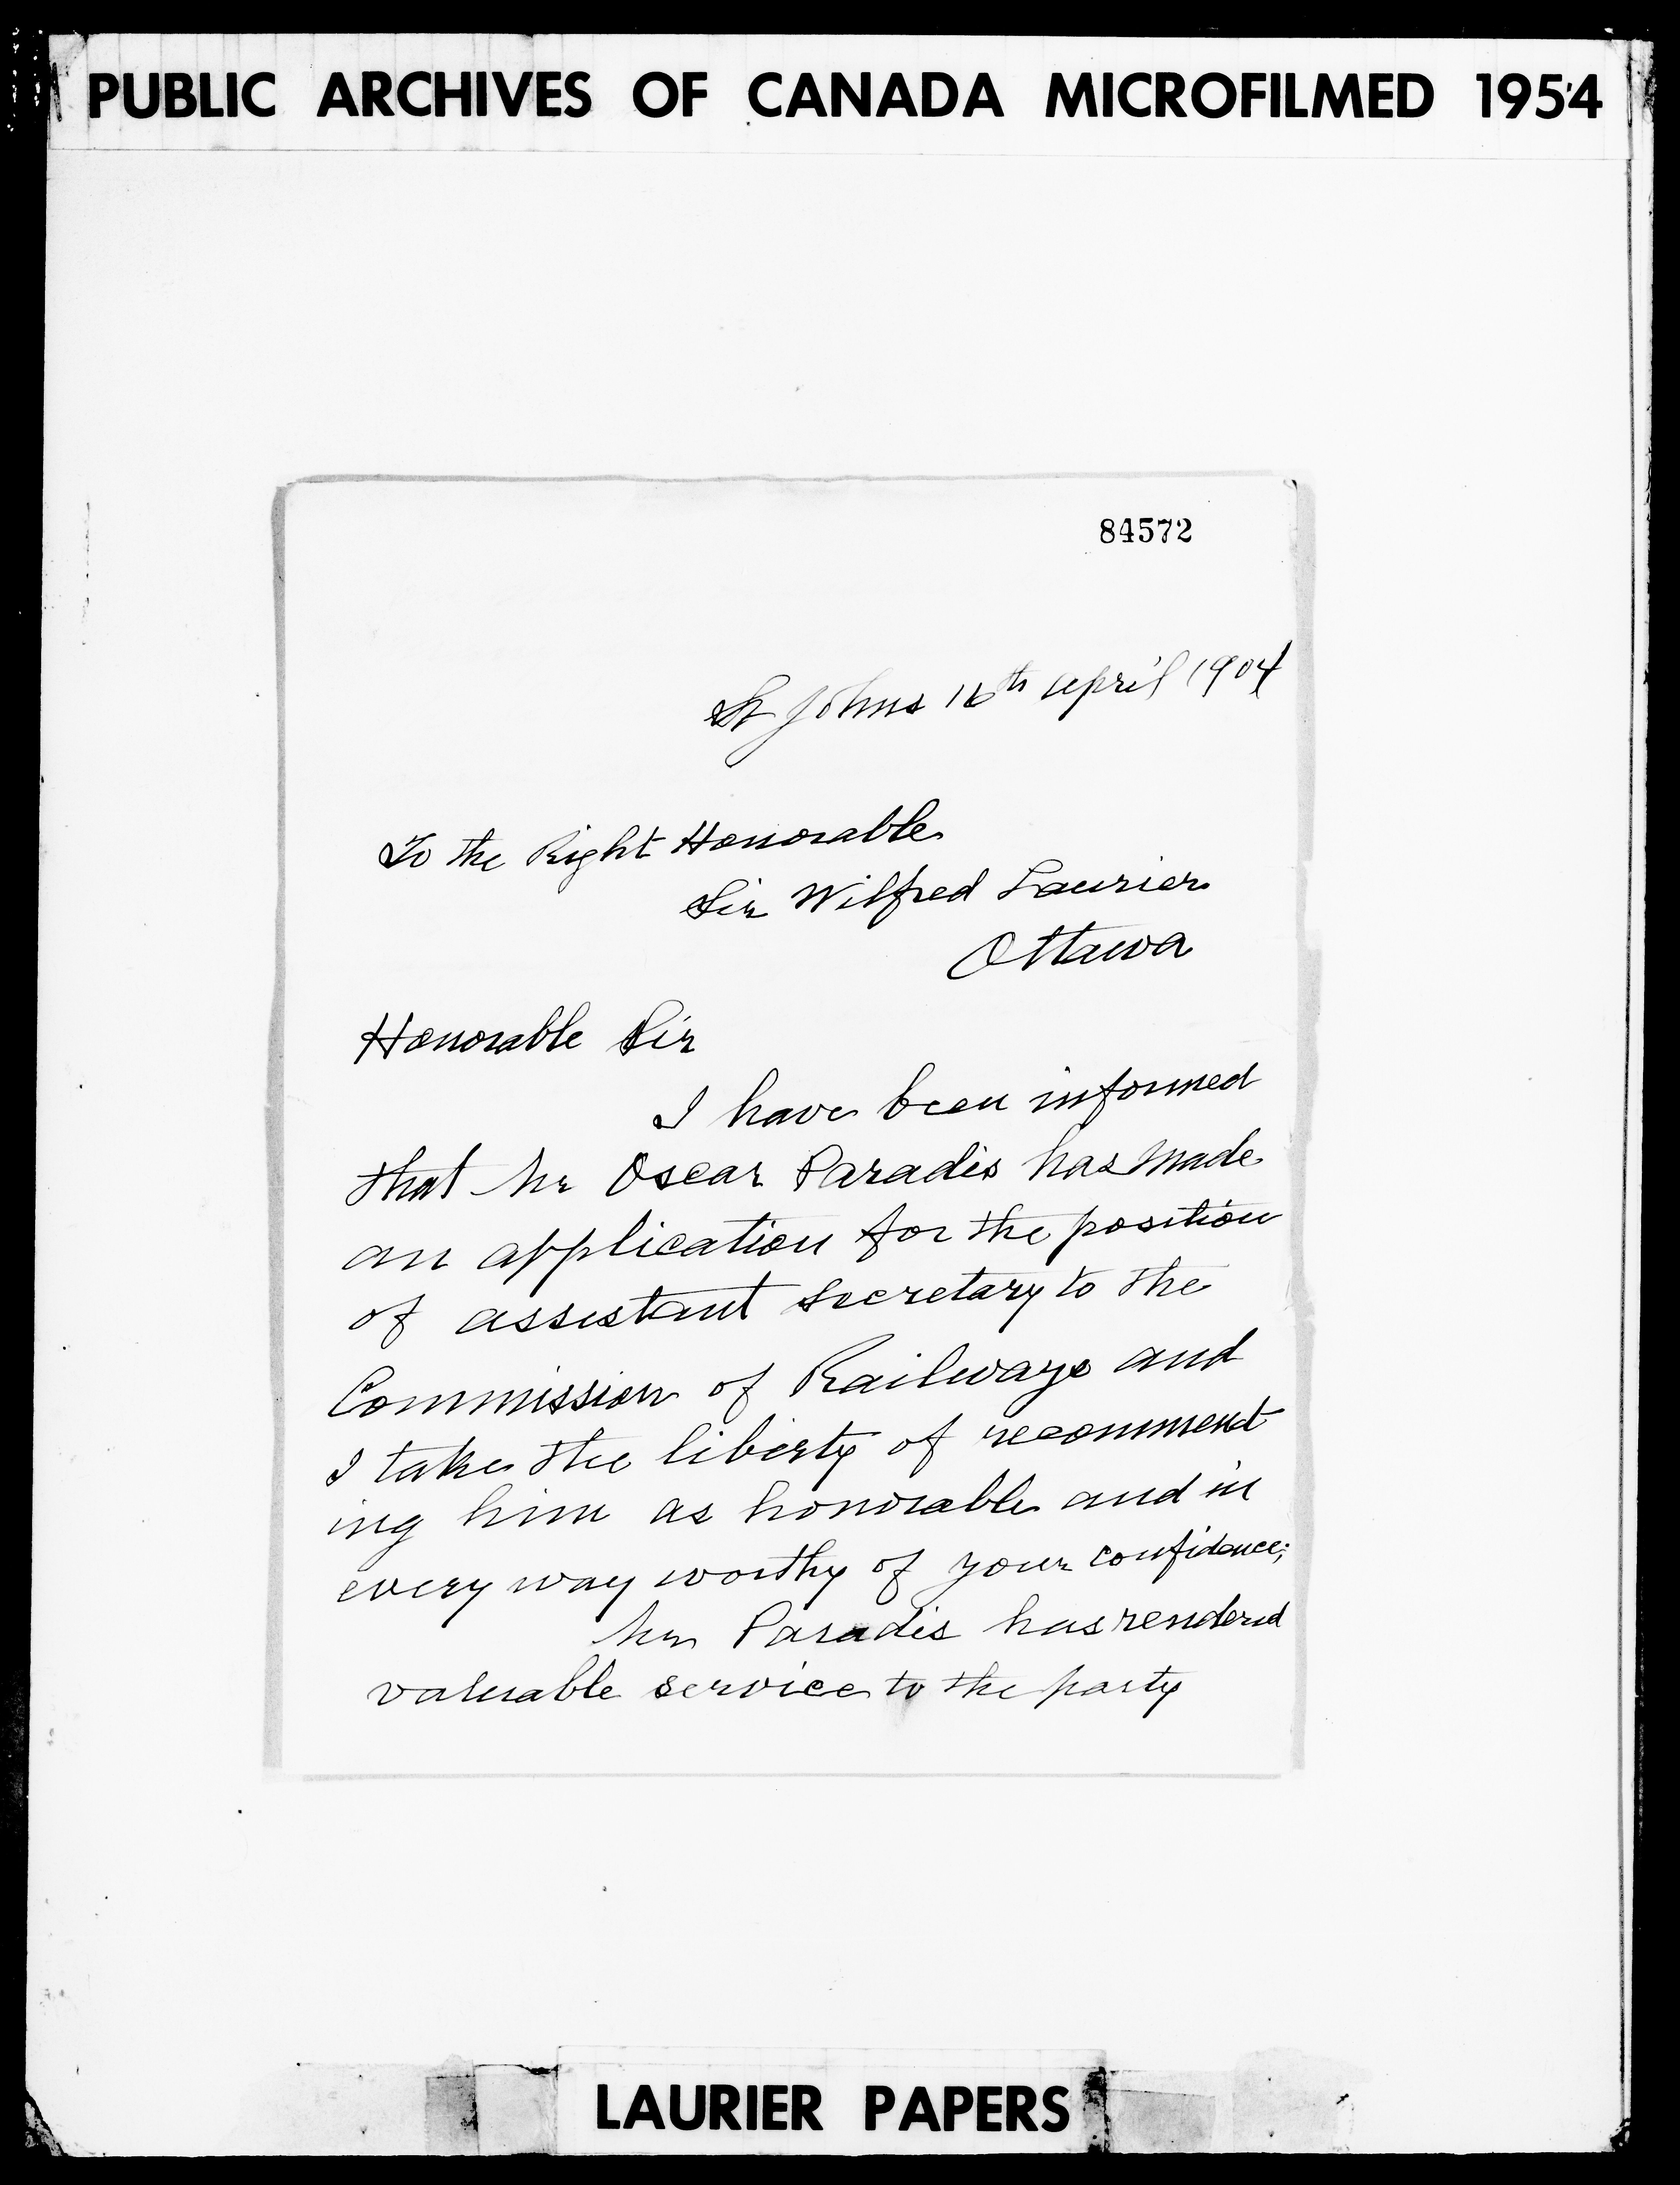 PUBLIC ARCHIVES OF CANADA MICROFILMED 1954
84572
St Johns 16th april 1904
To the Right Honorable
Sir Wilfred Laurier
Ottawa
Honorable Sir
I have been informed
that Mr Oscar Paradis has made
an application for the position
of assistant secretary to the
Commission of Railways and
I take the liberty of recommend
ing him as honorable and in
every way worthy of your confidence;
Mr Paradis has rendered
valuable service to the party
LAURIER PAPERS